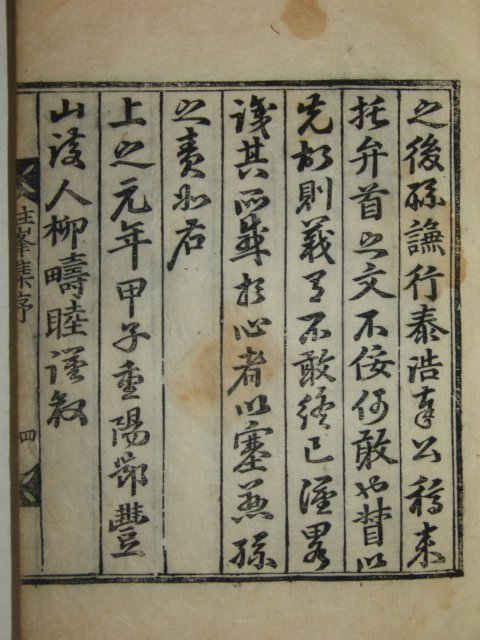 之後孫謙行泰浩奉公稿來
托弁首之文不佞何敢也惟以
先故則義有不敢終已謹畧
識其所感於心者以塞兼孫
之責如右
上之元年甲子重陽節豐
山後人柳疇睦謹敍
柱峯集序
四